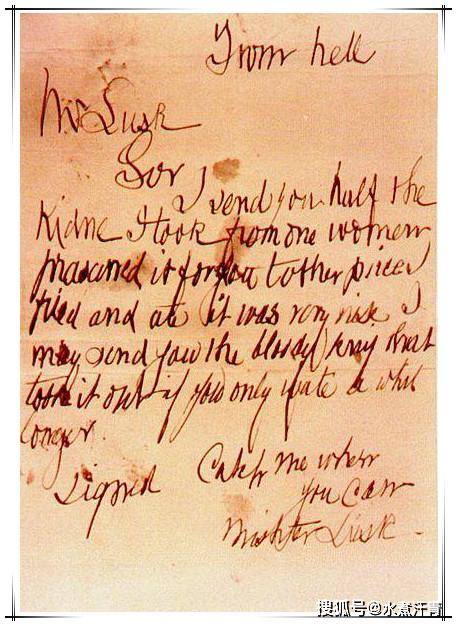 From hell
Mr Lusk
Sor
I send you half the
Kidne I took from one women
prasarved it for you tother piece I
fried and ate it was very nise I
may send you the bloody knif that
took it out if you only wate a whil
longer
signed
Catch me when
you can
Mishter Lusk
搜狐号@水煮汗青